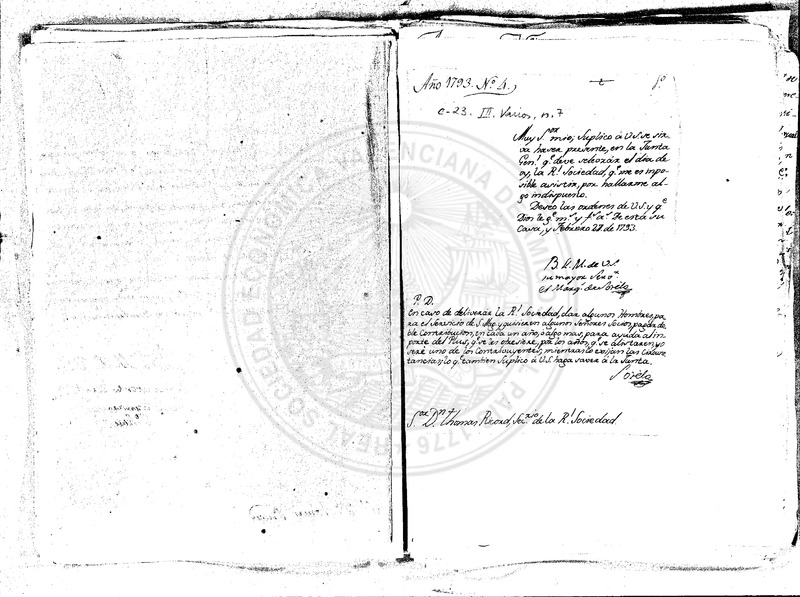 Año 1793. Nº 4.
C-23. III. Varios, n. 7
Muy Sor mio; Suplico à V.S. se sir-
va haser presente, en la Junta
Genl. qe. deve selebrar el dia de
oy, la Rl. Sociedad, qe. me es inpo-
sible asistir, por hallarme al-
go indispuesto.
Deseo las ordenes de V.S. y qe.
Dios le ge. ms. y fs. as. De esta su
Casa, y Febrero 28 de 1793.
B. L. M. de V.S.
su mayor Servor.
el Marqs. de
P. D.
En caso de deliverar la Rl. Sociedad, dar algunos Hombres, pa-
ra el Servicio de S. Mag. y quisieren algunos Señores Socios, pagar do-
ble Contribucion, en cada un año, ò algo mas, para ayuda al in-
porte del Plus, qe. se les ofresiere, por los años, qe. se alistaren, yo
seré uno de los Contribuyentes, mientras lo exijan las Circuns-
tancias; lo qe. tambien Suplico à V.S. haga saver à la Junta.
Sor. Dn. Thomas Ricord, Secrio. de la Rl. Sociedad
REAL SOCIEDAD ECONOMICA VALENCIANA
1776